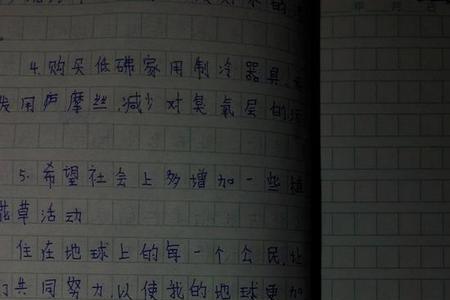 4.购买低砩家用制冷器具,
用 摩丝,减少对臭氧层的
5.希望社会上多增加一些植
花草活动
住在地球上的每一个公民,让
们共同努力,以使我的地球更加
年 月 日